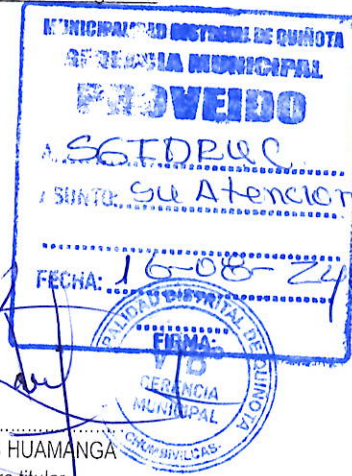 MUNICIPALIDAD DISTRITAL DE QUIÑOTA
GERENCIA MUNICIPAL
PROVEIDO
A: SGIDRUC
ASUNTO: Su Atencion
FECHA: 16-08-24
FIRMA:
DISTRITAL DE QUIÑOTA
V°B°
GERENCIA
MUNICIPAL
CHUMBIVILCAS
HUAMANGA
titular